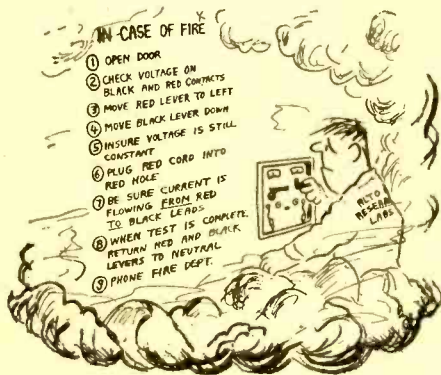 IN CASE OF FIRE
① OPEN DOOR
② CHECK VOLTAGE ON
BLACK AND RED CONTACTS
③ MOVE RED LEVER TO LEFT
④ MOVE BLACK LEVER DOWN
⑤ INSURE VOLTAGE IS STILL
CONSTANT
⑥ PLUG RED CORD INTO
RED HOLE
⑦ BE SURE CURRENT IS
FLOWING FROM RED
TO BLACK LEADS
⑧ WHEN TEST IS COMPLETE,
RETURN RED AND BLACK
LEVERS TO NEUTRAL
⑨ PHONE FIRE DEPT.
RESEAR
LABS